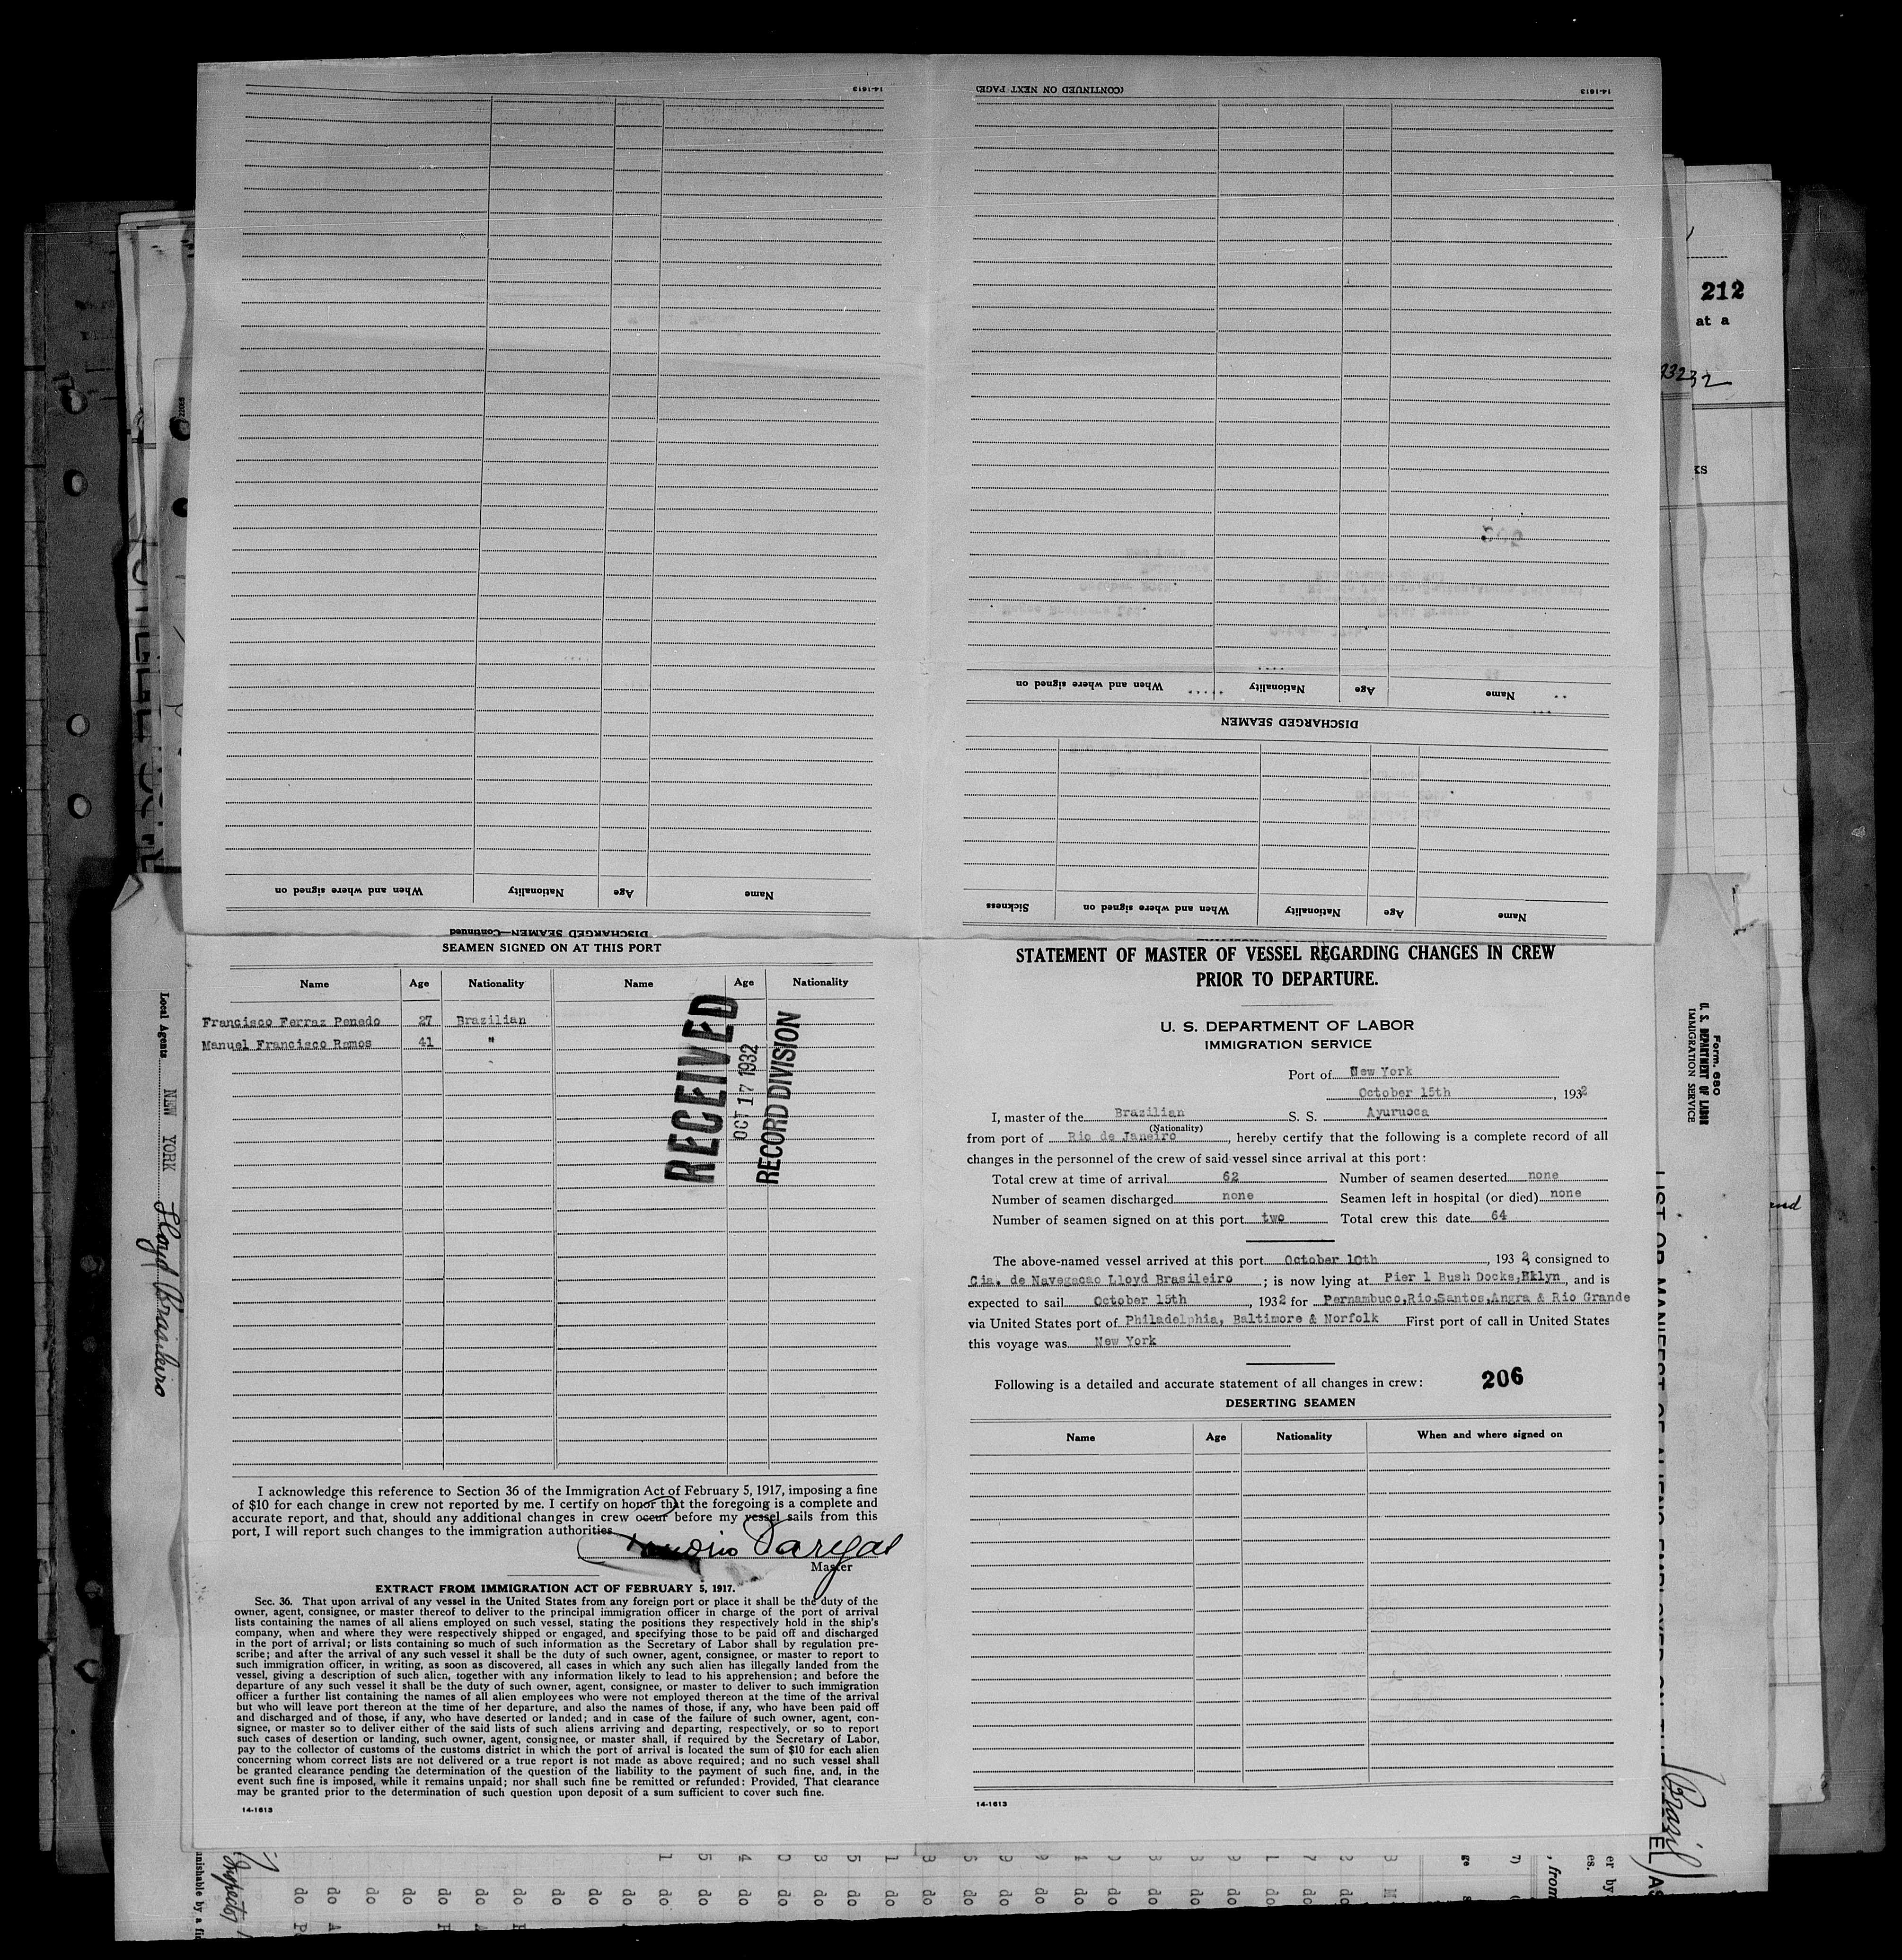 14-1613
(CONTINUED ON NEXT PAGE)
14-1613
Name
Age
Nationality
When and where signed on
DISCHARGED SEAMEN—Continued
Name
Age
Nationality
When and where signed on
DISCHARGED SEAMEN
Name
Age
Nationality
When and where signed on
Sickness
212
at a
23232
SEAMEN SIGNED ON AT THIS PORT
Name Age Nationality Name Age Nationality
Francisco Ferraz Penedo 27 Brazilian
Manuel Francisco Ramos 41 "
RECEIVED
OCT 17 1932
RECORD DIVISION
I acknowledge this reference to Section 36 of the Immigration Act of February 5, 1917, imposing a fine
of $10 for each change in crew not reported by me. I certify on honor that the foregoing is a complete and
accurate report, and that, should any additional changes in crew occur before my vessel sails from this
port, I will report such changes to the immigration authorities.
Vargas
Master
EXTRACT FROM IMMIGRATION ACT OF FEBRUARY 5, 1917.
Sec. 36. That upon arrival of any vessel in the United States from any foreign port or place it shall be the duty of the
owner, agent, consignee, or master thereof to deliver to the principal immigration officer in charge of the port of arrival
lists containing the names of all aliens employed on such vessel, stating the positions they respectively hold in the ship's
company, when and where they were respectively shipped or engaged, and specifying those to be paid off and discharged
in the port of arrival; or lists containing so much of such information as the Secretary of Labor shall by regulation pre-
scribe; and after the arrival of any such vessel it shall be the duty of such owner, agent, consignee, or master to report to
such immigration officer, in writing, as soon as discovered, all cases in which any such alien has illegally landed from the
vessel, giving a description of such alien, together with any information likely to lead to his apprehension; and before the
departure of any such vessel it shall be the duty of such owner, agent, consignee, or master to deliver to such immigration
officer a further list containing the names of all alien employees who were not employed thereon at the time of the arrival
but who will leave port thereon at the time of her departure, and also the names of those, if any, who have been paid off
and discharged and of those, if any, who have deserted or landed; and in case of the failure of such owner, agent, con-
signee, or master so to deliver either of the said lists of such aliens arriving and departing, respectively, or so to report
such cases of desertion or landing, such owner, agent, consignee, or master shall, if required by the Secretary of Labor,
pay to the collector of customs of the customs district in which the port of arrival is located the sum of $10 for each alien
concerning whom correct lists are not delivered or a true report is not made as above required; and no such vessel shall
be granted clearance pending the determination of the question of the liability to the payment of such fine, and, in the
event such fine is imposed, while it remains unpaid; nor shall such fine be remitted or refunded: Provided, That clearance
may be granted prior to the determination of such question upon deposit of a sum sufficient to cover such fine.
14-1613
STATEMENT OF MASTER OF VESSEL REGARDING CHANGES IN CREW
PRIOR TO DEPARTURE.
U. S. DEPARTMENT OF LABOR
IMMIGRATION SERVICE
Port of New York
October 15th, 1932
I, master of the Brazilian S. S. Ayuruoca
(Nationality)
from port of Rio de Janeiro, hereby certify that the following is a complete record of all
changes in the personnel of the crew of said vessel since arrival at this port:
Total crew at time of arrival 62 Number of seamen deserted none
Number of seamen discharged none Seamen left in hospital (or died) none
Number of seamen signed on at this port two Total crew this date 64
The above-named vessel arrived at this port October 10th, 1932, consigned to
Cia. de Navegacao Lloyd Brasileiro; is now lying at Pier 1 Bush Docks, Bklyn, and is
expected to sail October 15th, 1932 for Pernambuco,Rio,Santos,Angra & Rio Grande
via United States port of Philadelphia, Baltimore & Norfolk First port of call in United States
this voyage was New York
Following is a detailed and accurate statement of all changes in crew:
206
DESERTING SEAMEN
Name Age Nationality When and where signed on
14-1613
Local Agents NEW YORK Lloyd Brasileiro
Form 680
U. S. DEPARTMENT OF LABOR
IMMIGRATION SERVICE
LIST OR MANIFEST OF ALIENS EMPLOYED ON THE
(Brasil)